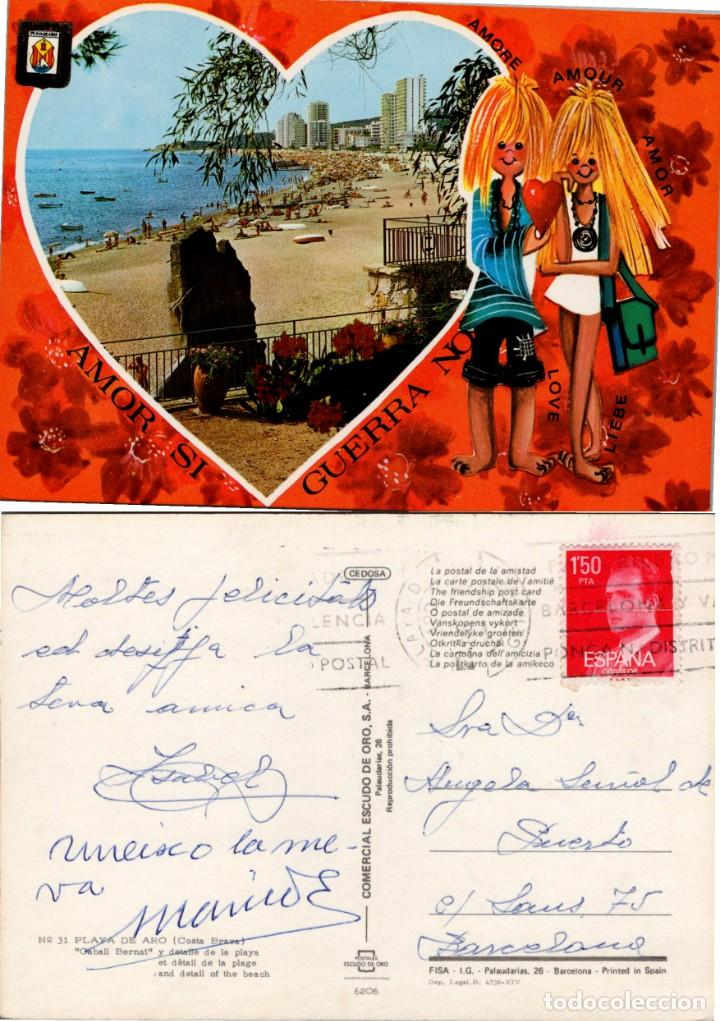 PLAYA DE ARO
AMORE
AMOUR
AMOR
LOVE
LIEBE
AMOR SI
GUERRA NO
CEDOSA
La postal de la amistad
La carte postale de l'amitié
The friendship post card
Die Freundschaftskarte
O postal de amizade
Vanskopens vykort
Vriendelyke groeten
Otkritka druchbi
La cartolina dell'amicizia
La postkarto de la amikeco
1'50
PTA
ESPAÑA
CORREOS
F.N.M.T.
LENCIA
POSTAL
BARCELONA Y VA
PONGA Nº DISTRIT
Moltes felicitats
et desitja la
seva amica
Isabel
Uneixo la me-
va
COMERCIAL ESCUDO DE ORO, S.A. - BARCELONA
Palaudarias, 26
Reproducción prohibida
Sra Dña
Angela Señol de
Puerto
c/ Sans, 75
Barcelona
Nº 31 PLAYA DE ARO (Costa Brava)
"Caball Bernat" y detalle de la playa
et détail de la plage
and detail of the beach
POSTALES
ESCUDO DE ORO
6206
FISA - I.G. - Palaudarias, 26 - Barcelona - Printed in Spain
Dep. Legal.B. 4738-XIV
todocoleccion